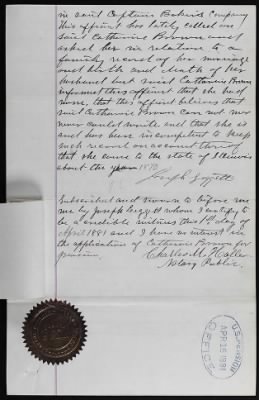 in said Captain Bakers Company
this affiant has lately called on
said Catharine Brown and
asked her in relation to a
family record of her marriage
and birth and death of her
husband but said Catharine Brown
informed this affiant that she had
none, that this affiant believes that
said Catharine Brown can not nor
never could write and that she is
and has been incompetent to keep
such record on account thereof
that she came to the state of Illinois
about the year 1870.
Joseph Leggett
Subscribed and sworn to before me
me by Joseph Leggett whom I certify to
be a credible witness this 1st day of
April 1881 and I have no interest in
the application of Catharine Brown for
pension.
Charles M. Haller
Notary Public.
U.S. PENSION
APR 16 1881
OFFICE